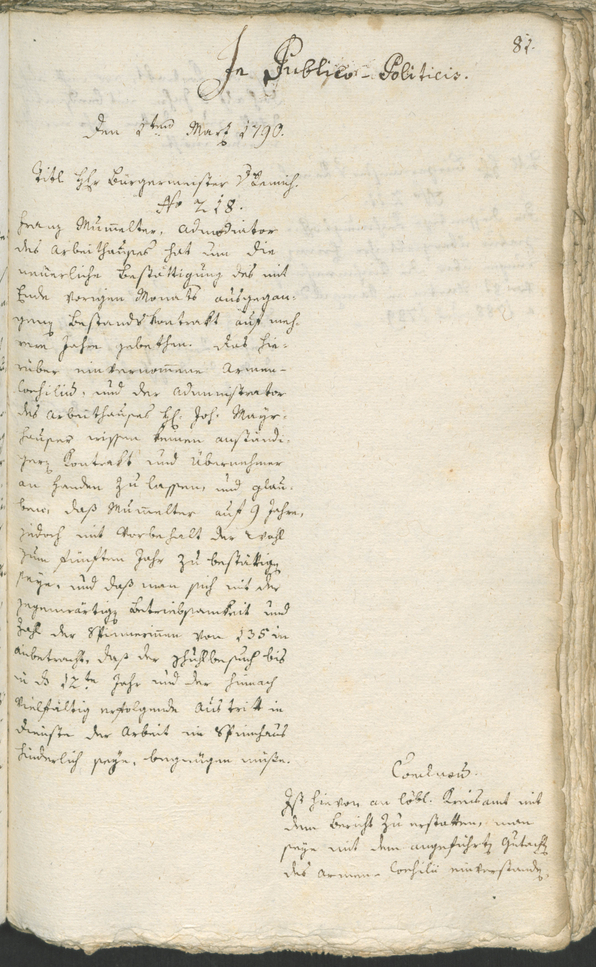 82.
In Publico-Politicis.
Den 1ten Marz 1790.
Titl. Hhr Bürgermeister
No 218.
Franz Mumelter, Admodiator
des Arbeithauses hat um die
neuerliche Bestättigung des mit
Ende vorigen Monats ausgegan-
genen Bestandskontrakt auf meh-
rere Jahre gebethen. Das hie-
rüber einvernommene Armen-
Consilium, und der Administrator
des Arbeithauses H. Joh. Mayr-
hauser wissen keinen anständi-
gern Kontrakt und Übernehmer
an Handen zu lassen, und glau-
ben, daß Mumelter auf 9 Jahre,
jedoch mit Vorbehalt der Wahl
zum fünften Jahr zu bestättigen
seye, und daß man sich mit der
gegenwärtigen Betriebsamkeit und
Zahl der Spinnerinnen von 135 in
anbetracht, daß der Schuhlbesuch bis
in das 12te Jahr und der hienach
vielfältig erfolgende Austritt in
Dienste der Arbeit im Spinnhaus
hinderlich seye, begnügen müße.
Conclusum.
Ist hievon an löbl. Kreisamt mit
dem Bericht zu erstatten, man
seye mit dem angeführten Gutacht
des Armen-Consilii einverstanden.